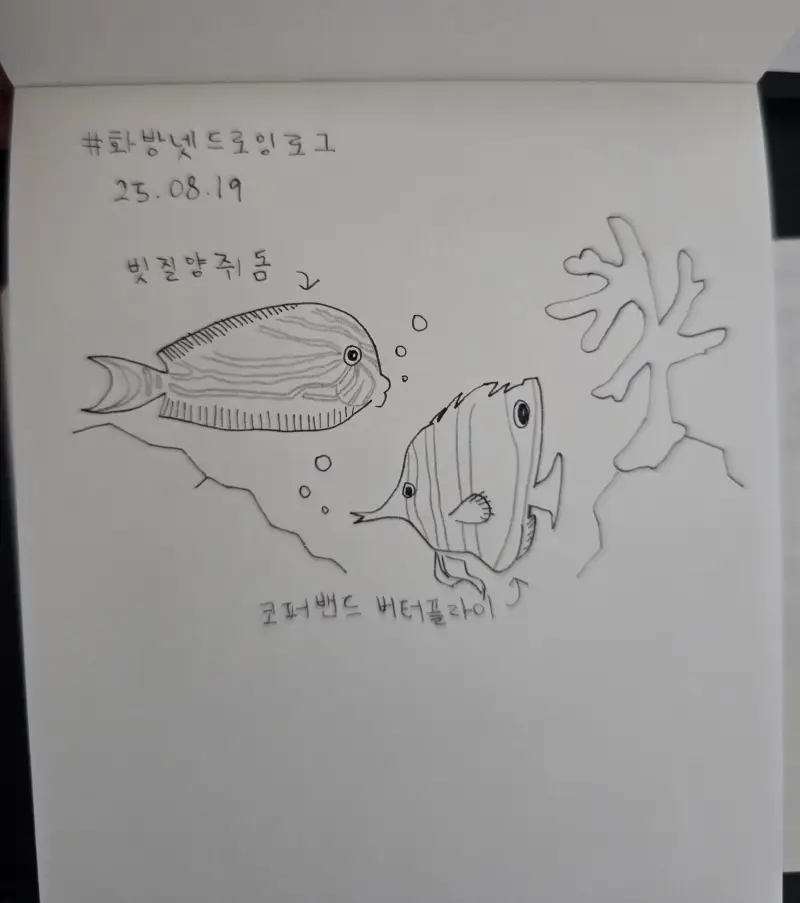 #화방넷드로잉로그
25.08.19
빗질양쥐돔
코퍼밴드 버터플라이